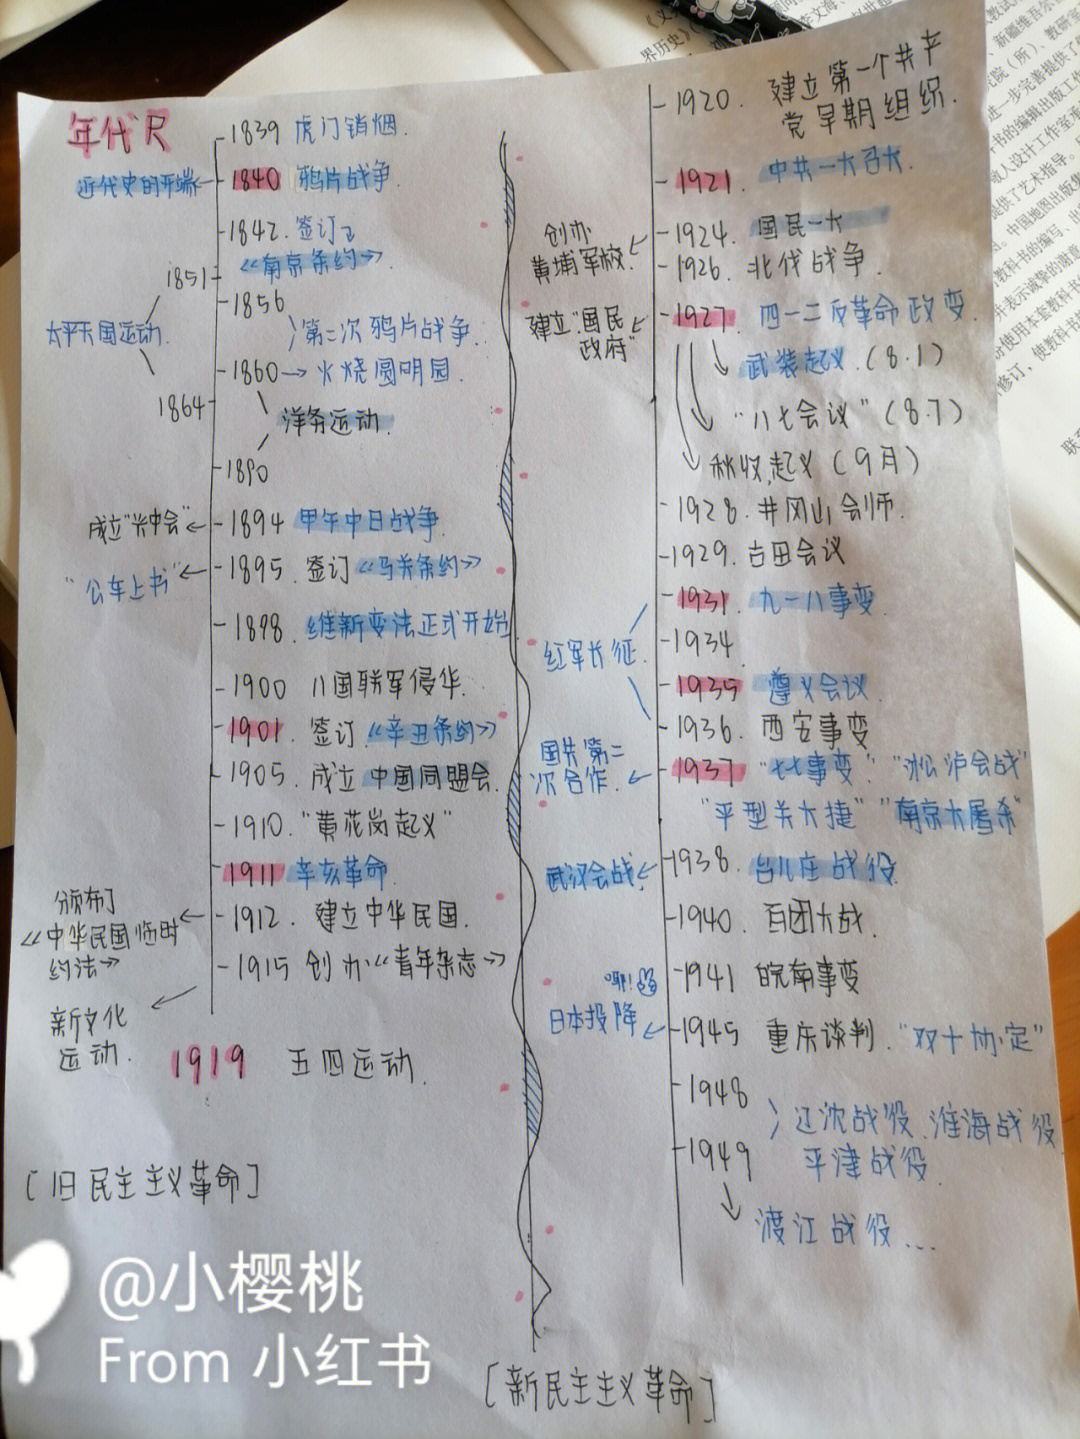 年代尺
1839 虎门销烟.
近代史的开端 1840 鸦片战争.
1842. 签订了
《南京条约》
1851
1856
太平天国运动.
第二次鸦片战争.
1860 → 火烧圆明园.
1864
洋务运动.
1890
成立"兴中会" 1894 甲午中日战争.
"公车上书" 1895. 签订《马关条约》
1898. 维新变法正式开始
1900 八国联军侵华.
1901. 签订《辛丑条约》
1905. 成立中国同盟会.
1910. "黄花岗起义"
1911 辛亥革命
颁布了
《中华民国临时
约法》
1912. 建立中华民国.
1915 创办《青年杂志》
新文化
运动.
1919 五四运动.
[旧民主主义革命]
1920. 建立第一个共产
党早期组织.
1921. 中共一大召大.
创办
黄埔军校.
1924. 国民一大
1926. 北伐战争.
建立"国民
政府"
1927. 四一二反革命政变.
武装起义.(8.1)
"八七会议"(8.7)
秋收起义(9月)
1928. 井冈山会师.
1929. 古田会议
1931. 九一八事变.
红军长征.
1934
1935 遵义会议
1936. 西安事变
国共第二
次合作.
1937 "七七事变". "淞沪会战"
"平型关大捷" "南京大屠杀"
武汉会战. 1938. 台儿庄战役.
1940. 百团大战.
1941 皖南事变
耶!
日本投降 1945 重庆谈判. "双十协定"
1948
辽沈战役.淮海战役
平津战役.
1949
渡江战役...
[新民主主义革命]
@小樱桃
From 小红书